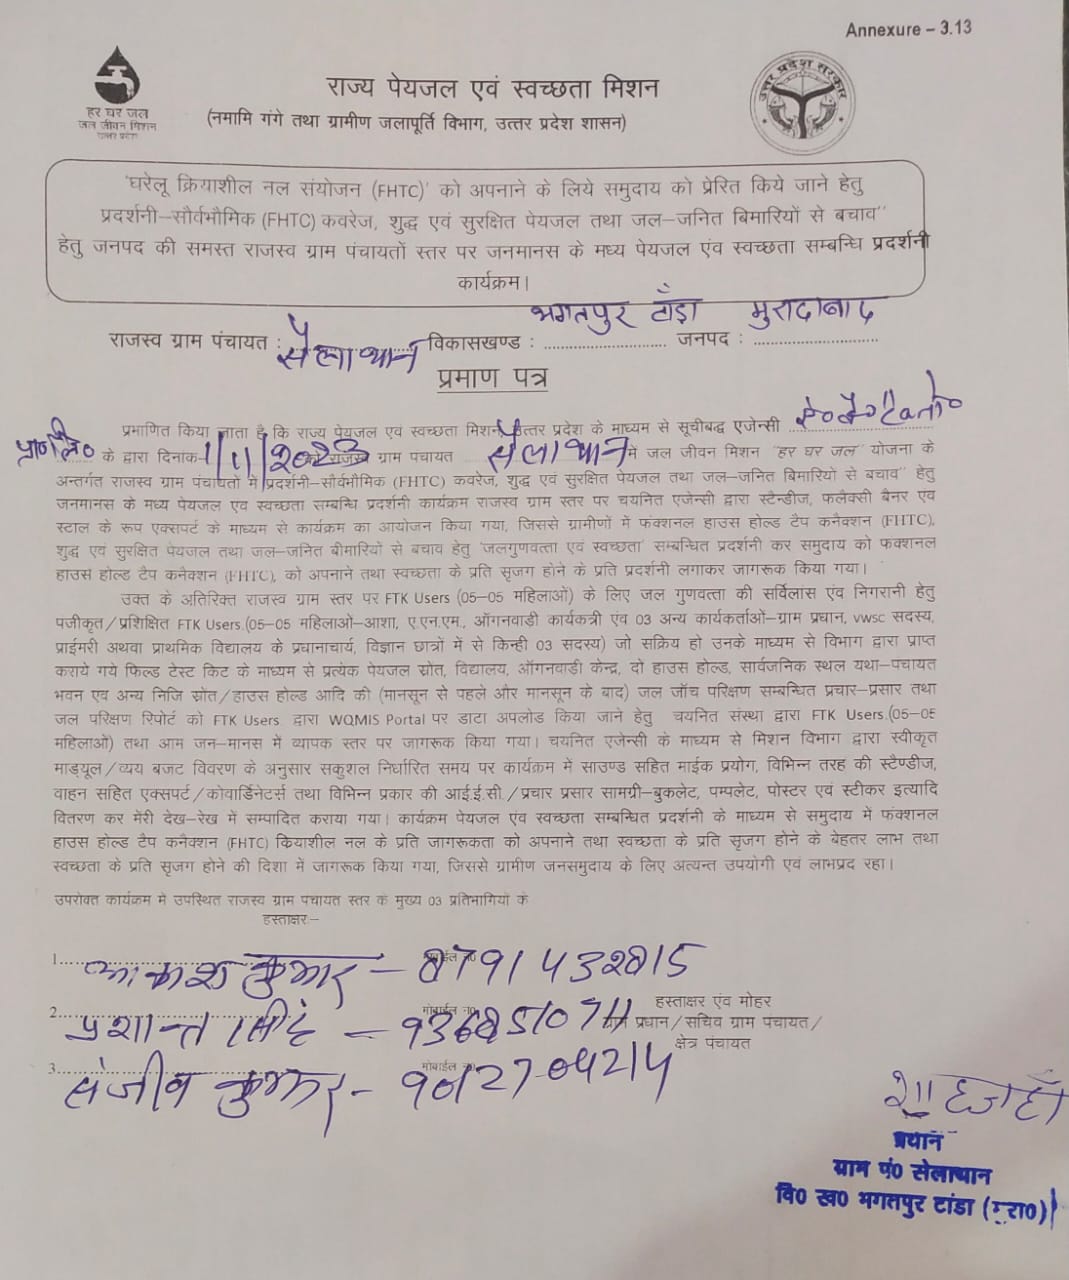 Annexure – 3.13
हर घर जल
जल जीवन मिशन
उत्तर प्रदेश
राज्य पेयजल एवं स्वच्छता मिशन
(नमामि गंगे तथा ग्रामीण जलापूर्ति विभाग, उत्तर प्रदेश शासन)
उत्तर प्रदेश सरकार
'घरेलू क्रियाशील नल संयोजन (FHTC)' को अपनाने के लिये समुदाय को प्रेरित किये जाने हेतु
प्रदर्शनी–सौर्वभौमिक (FHTC) कवरेज, शुद्ध एवं सुरक्षित पेयजल तथा जल–जनित बिमारियों से बचाव"
हेतु जनपद की समस्त राजस्व ग्राम पंचायतों स्तर पर जनमानस के मध्य पेयजल एंव स्वच्छता सम्बन्धि प्रदर्शनी
कार्यक्रम।
राजस्व ग्राम पंचायत : सैलाथान विकासखण्ड : भगतपुर टाँडा जनपद : मुरादाबाद
प्रमाण पत्र
प्रमाणित किया जाता है कि राज्य पेयजल एवं स्वच्छता मिशन, उत्तर प्रदेश के माध्यम से सूचीबद्ध एजेन्सी
प्रा०लि० के द्वारा दिनांक 1/11/2023 को राजस्व ग्राम पंचायत सैलाथान में जल जीवन मिशन "हर घर जल" योजना के
अन्तर्गत राजस्व ग्राम पंचायतों में प्रदर्शनी–सौर्वभौमिक (FHTC) कवरेज, शुद्ध एवं सुरक्षित पेयजल तथा जल–जनित बिमारियों से बचाव" हेतु
जनमानस के मध्य पेयजल एंव स्वच्छता सम्बन्धि प्रदर्शनी कार्यक्रम राजस्व ग्राम स्तर पर चयनित एजेन्सी द्वारा स्टेन्डीज, फलैक्सी बैनर एंव
स्टाल के रूप एक्सपर्ट के माध्यम से कार्यक्रम का आयोजन किया गया, जिससे ग्रामीणों में फंक्शनल हाउस होल्ड टैप कनैक्शन (FHTC),
शुद्ध एवं सुरक्षित पेयजल तथा जल–जनित बीमारियों से बचाव हेतु 'जलगुणवत्ता एवं स्वच्छता' सम्बन्धित प्रदर्शनी कर समुदाय को फक्शनल
हाउस होल्ड टैप कनैक्शन (FHTC), को अपनाने तथा स्वच्छता के प्रति सृजग होने के प्रति प्रदर्शनी लगाकर जागरूक किया गया।
उक्त के अतिरिक्त राजस्व ग्राम स्तर पर FTK Users (05–05 महिलाओं) के लिए जल गुणवत्ता की सर्विलांस एंव निगरानी हेतु
पंजीकृत/प्रशिक्षित FTK Users.(05–05 महिलाओ–आशा, ए.एन.एम., ऑगनवाड़ी कार्यकत्री एंव 03 अन्य कार्यकर्ताओं–ग्राम प्रधान, vwsc सदस्य,
प्राईमरी अथवा प्राथमिक विद्यालय के प्रधानाचार्य, विज्ञान छात्रों में से किन्ही 03 सदस्य) जो सक्रिय हो उनके माध्यम से विभाग द्वारा प्राप्त
कराये गये फिल्ड टेस्ट किट के माध्यम से प्रत्येक पेयजल स्रोत, विद्यालय, ऑगनवाडी केन्द्र, दो हाउस होल्ड, सार्वजनिक स्थल यथा–पचायत
भवन एव अन्य निजि स्रोंत/हाउस होल्ड आदि की (मानसून से पहले और मानसून के बाद) जल जॉच परिक्षण सम्बन्धित प्रचार–प्रसार तथा
जल परिक्षण रिपोर्ट को FTK Users द्वारा WQMIS Portal पर डाटा अपलोड किया जाने हेतु चयनित संस्था द्वारा FTK Users.(05–05
महिलाओं) तथा आम जन–मानस में व्यापक स्तर पर जागरूक किया गया। चयनित एजेन्सी के माध्यम से मिशन विभाग द्वारा स्वीकृत
माड्यूल/व्यय बजट विवरण के अनुसार सकुशल निर्धारित समय पर कार्यक्रम में साउण्ड सहित माईक प्रयोग, विभिन्न तरह की स्टैण्डीज,
वाहन सहित एक्सपर्ट/कोवार्डिनेटर्स तथा विभिन्न प्रकार की आई.ई.सी./प्रचार प्रसार सामग्री–बुकलेट, पम्पलेट, पोस्टर एवं स्टीकर इत्यादि
वितरण कर मेरी देख–रेख में सम्पादित कराया गया। कार्यक्रम पेयजल एंव स्वच्छता सम्बन्धित प्रदर्शनी के माध्यम से समुदाय में फंक्शनल
हाउस होल्ड टैप कनैक्शन (FHTC) कियाशील नल के प्रति जागरूकता को अपनाने तथा स्वच्छता के प्रति सृजग होने के बेहतर लाभ तथा
स्वच्छता के प्रति सृजग होने की दिशा में जागरूक किया गया, जिससे ग्रामीण जनसमुदाय के लिए अत्यन्त उपयोगी एवं लाभप्रद रहा।
उपरोक्त कार्यक्रम मे उपस्थित राजस्व ग्राम पंचायत स्तर के मुख्य 03 प्रतिभागियो के
हस्ताक्षर:–
1. आकाश कुमार – मोबाईल न० 8791432815
हस्ताक्षर एंव मोहर
2. प्रशान्त सिंह – मोबाईल न० 9368510711
ग्राम प्रधान/सचिव ग्राम पंचायत/
क्षेत्र पंचायत
3. संजीव कुमार – मोबाईल न० 9012704214
शाहजहाँ
प्रधान
ग्राम पं० सेलाथान
वि० ख० भगतपुर टांडा (मुरा०)